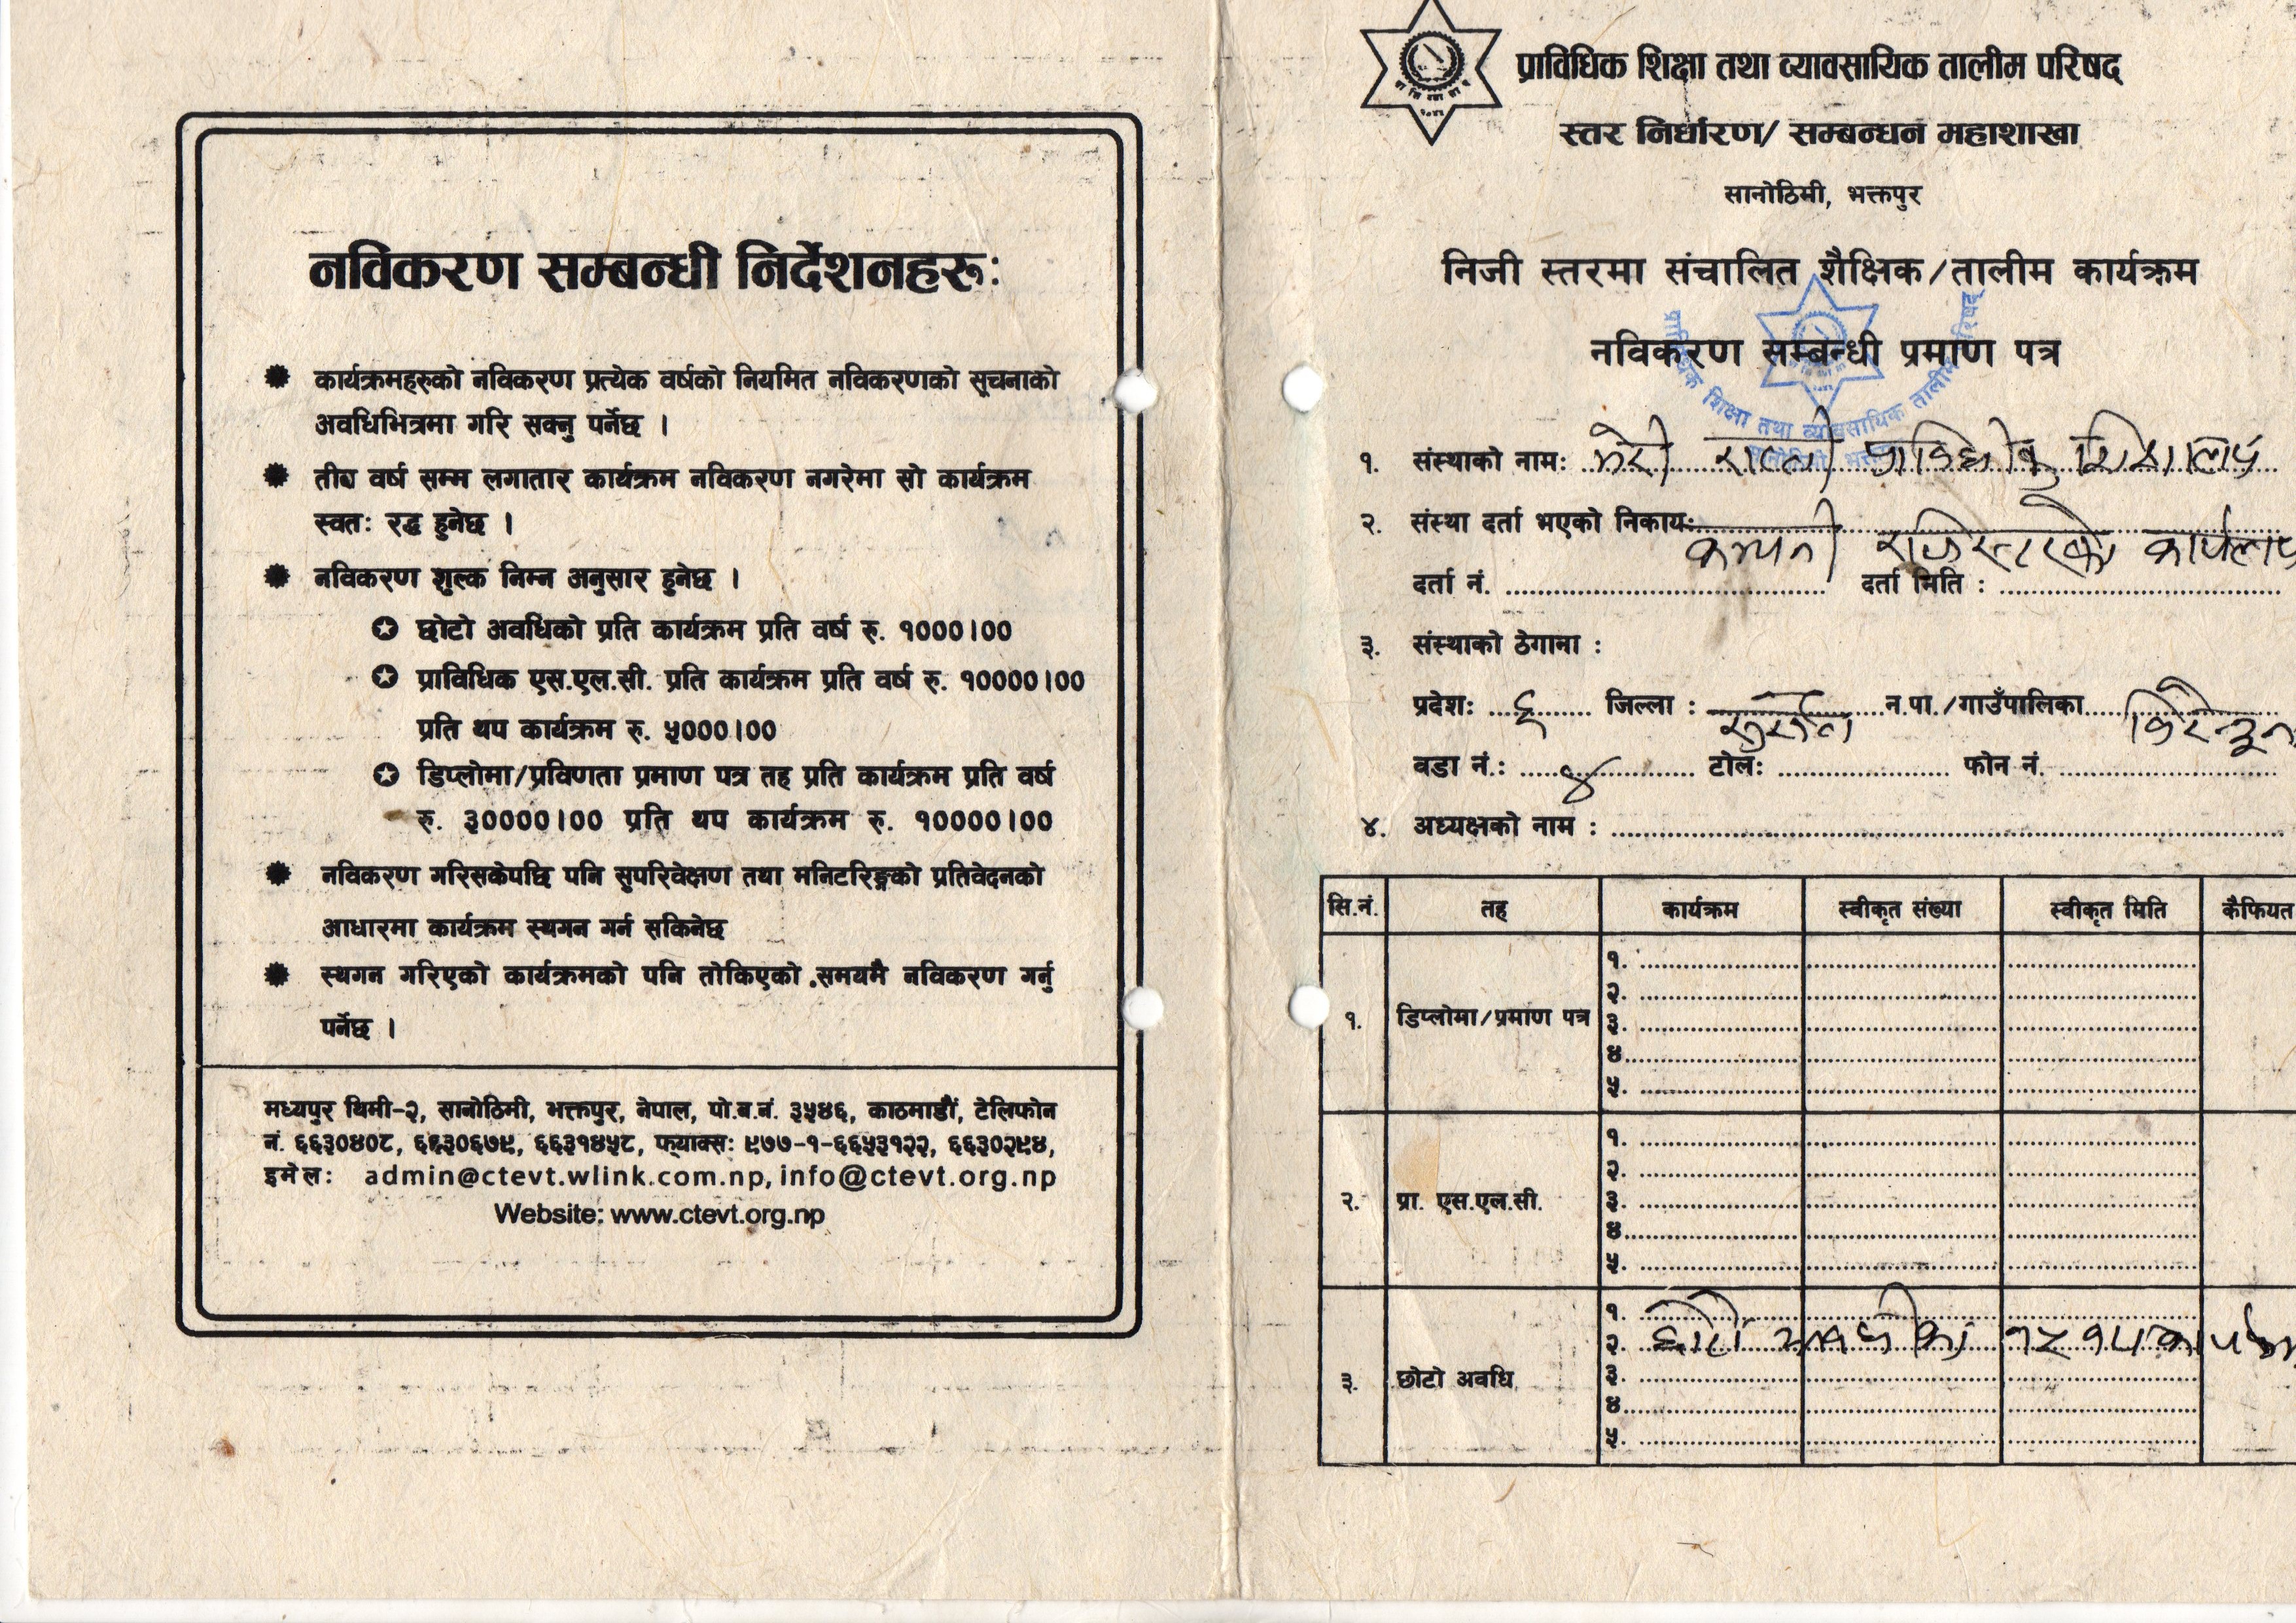 नविकरण सम्बन्धी निर्देशनहरू:
कार्यक्रमहरुको नविकरण प्रत्येक वर्षको नियमित नविकरणको सूचनाको
अवधिभित्रमा गरि सक्नु पर्नेछ ।
वर्ष सम्म लगातार कार्यक्रम नविकरण नगरेमा सो कार्यक्रम
स्वतः रद्ध हुनेछ ।
नविकरण शुल्क निम्न अनुसार हुनेछ ।
छोटो अवधिको प्रति कार्यक्रम प्रति वर्ष रु. १०००।००
प्राविधिक एस.एल.सी. प्रति कार्यक्रम प्रति वर्ष रु. १००००।००
प्रति थप कार्यक्रम रु. ५०००।००
डिप्लोमा/प्रविणता प्रमाण पत्र तह प्रति कार्यक्रम प्रति वर्ष
रु. ३००००।०० प्रति थप कार्यक्रम रु. १००००।००
नविकरण गरिसकेपछि पनि सुपरिवेक्षण तथा मनिटरिङ्गको प्रतिवेदनको
आधारमा कार्यक्रम स्थगन गर्न सकिनेछ
स्थगन गरिएको कार्यक्रमको पनि तोकिएको समयमै नविकरण गर्नु
पर्नेछ ।
मध्यपुर थिमी-२, सानोठिमी, भक्तपुर, नेपाल, पो.ब.नं. ३५४६, काठमाडौं, टेलिफोन
नं. ६६३०४०८, ६६३०६७९, ६६३१४५८, फ्याक्स: ९७७-१-६६५३१२२, ६६३०२९४,
इमेल: admin@ctevt.wlink.com.np, info@ctevt.org.np
Website: www.ctevt.org.np
प्राविधिक शिक्षा तथा व्यावसायिक तालीम परिषद्
स्तर निर्धारण/ सम्बन्धन महाशाखा
सानोठिमी, भक्तपुर
निजी स्तरमा संचालित शैक्षिक/तालीम कार्यक्रम
नविकरण सम्बन्धी प्रमाण पत्र
प्राविधिक शिक्षा तथा व्यावसायिक तालीम परिषद
१. संस्थाको नाम: भेरी प्राविधीक शिक्षालय
२. संस्था दर्ता भएको निकाय:
कम्पनी
दर्ता नं. दर्ता मिति :
३. संस्थाको ठेगाना :
प्रदेश: ६ जिल्ला : सुर्खेत न.पा./गाउँपालिका
वडा नं.: ४ टोल: फोन नं.
४. अध्यक्षको नाम :
सि.नं. तह कार्यक्रम स्वीकृत संख्या स्वीकृत मिति कैफियत
१. डिप्लोमा/प्रमाण पत्र
१.
२.
३.
४.
५.
२. प्रा. एस.एल.सी.
१.
२.
३.
४.
५.
३. छोटो अवधि
१.
२. छोटो अवधीका
३.
४.
५.